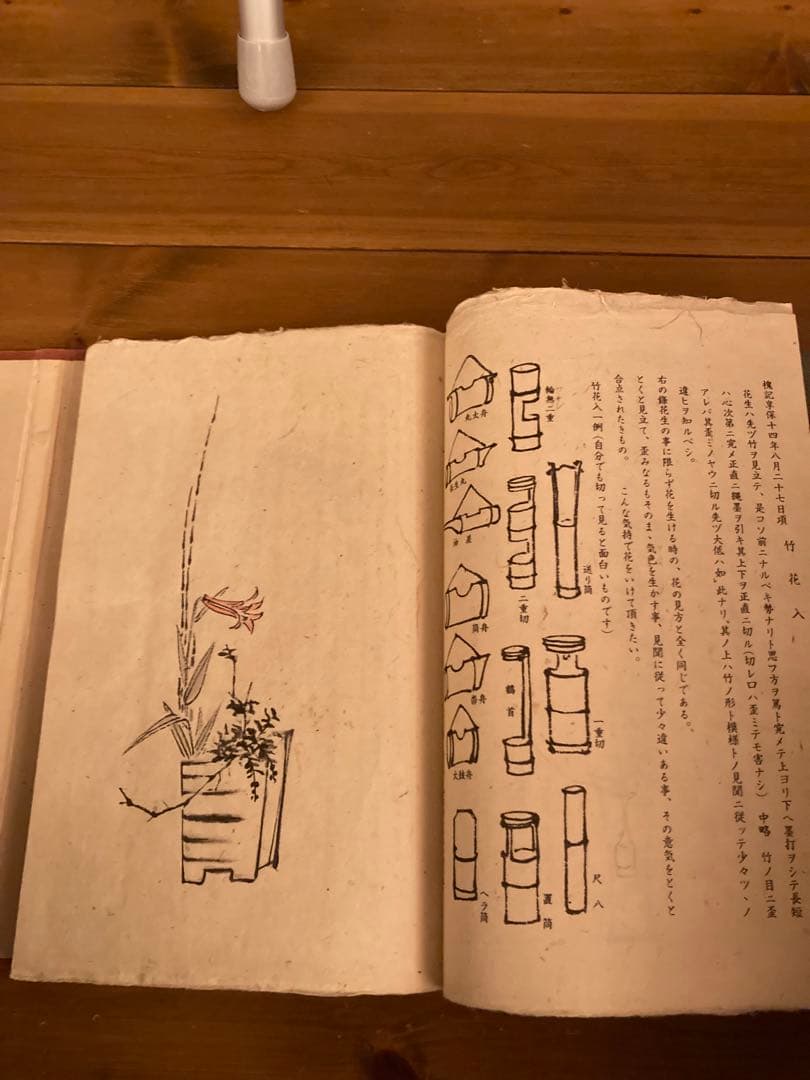 竹花入
槐記享保十四年八月二十七日項
花生ハ先ヅ竹ヲ見立テ、是コソ前ニナルベキ勢ナリト思フ方ヲ篤ト寛メテ上ヨリ下ヘ墨打ヲシテ長短
ハ心次第ニ寛メ正直ニ縄墨ヲ引キ其上下ヲ正直ニ切ル(切レ口ハ歪ミテモ害ナシ) 中略 竹ノ目ニ歪
アレバ其歪ミノヤウニ切ル先ヅ大低ハ如此ナリ、其ノ上ハ竹ノ形ト模様トノ見聞ニ従ッテ少々ヅヽノ
違ヒヲ知ルベシ。
右の鋒花生の事に限らず花を生ける時の、花の見方と全く同じである。
とくと見立て、歪みなるもそのまま、気色を生かす事、見聞に従って少々違いある事、その意気をとくと
合点されたきもの。 こんな気持で花をいけて頂きたい。
竹花入一例(自分でも切って見ると面白いものです)
送り筒
一重切
尺八
輪無二重
二重切
鶴首
置筒
ヘラ筒
丸太舟
長生丸
油差
筒舟
沓舟
太鼓舟